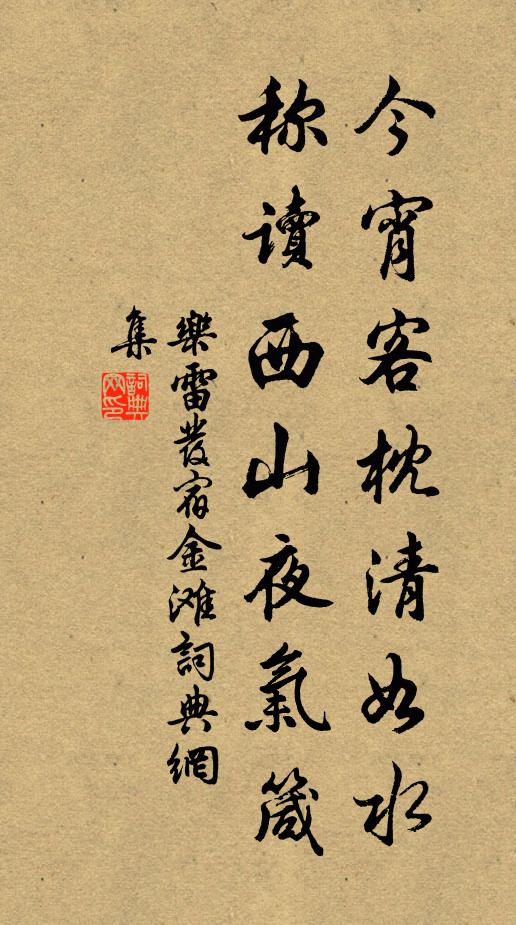 今宵客枕清如水
称读西山夜氣箴
樂雷發宿金滩詞典網
集
詞典網印